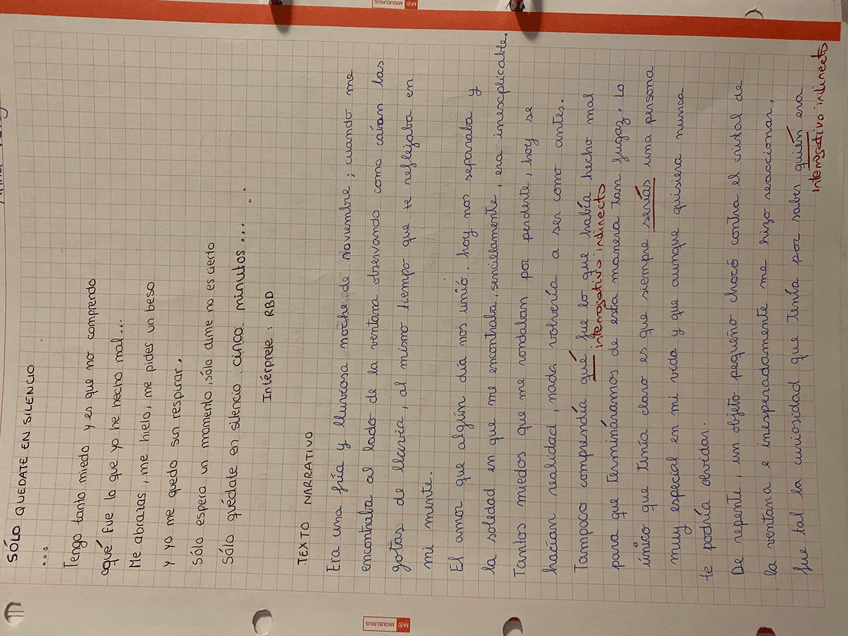 SÓLO QUEDATE EN SILENCIO
...
Tengo tanto miedo y es que no comprendo
qué fue lo que yo he hecho mal...
Me abrazas, me hielo, me pides un beso
y yo me quedo sin respirar.
Sólo espera un momento, sólo dime no es cierto
Sólo quédate en silencio cinco minutos...
Intérprete: RBD
TEXTO NARRATIVO
Era una fría y lluviosa noche de noviembre; cuando me
encontraba al lado de la ventana observando como caían las
gotas de lluvia, al mismo tiempo que te reflejaba en
mi mente.
El amor que algún día nos unió, hoy nos separaba y
la soledad en que me encontraba, sencillamente, era inexplicable.
Tantos miedos que me rondaban por perderte, hoy se
hacían realidad, nada volvería a ser como antes.
Tampoco comprendía qué fue lo que había hecho mal
interrogativo indirecto
para que termináramos de esta manera tan fugaz. Lo
único que tenía claro es que siempre serías una persona
muy especial en mi vida y que aunque quisiera nunca
te podría olvidar.
De repente, un objeto pequeño chocó contra el cristal de
la ventana e inesperadamente me hizo reaccionar,
fue tal la curiosidad que tenía por saber quién era
interrogativo indirecto
MIQUELRIUS
MIQUELRIUS